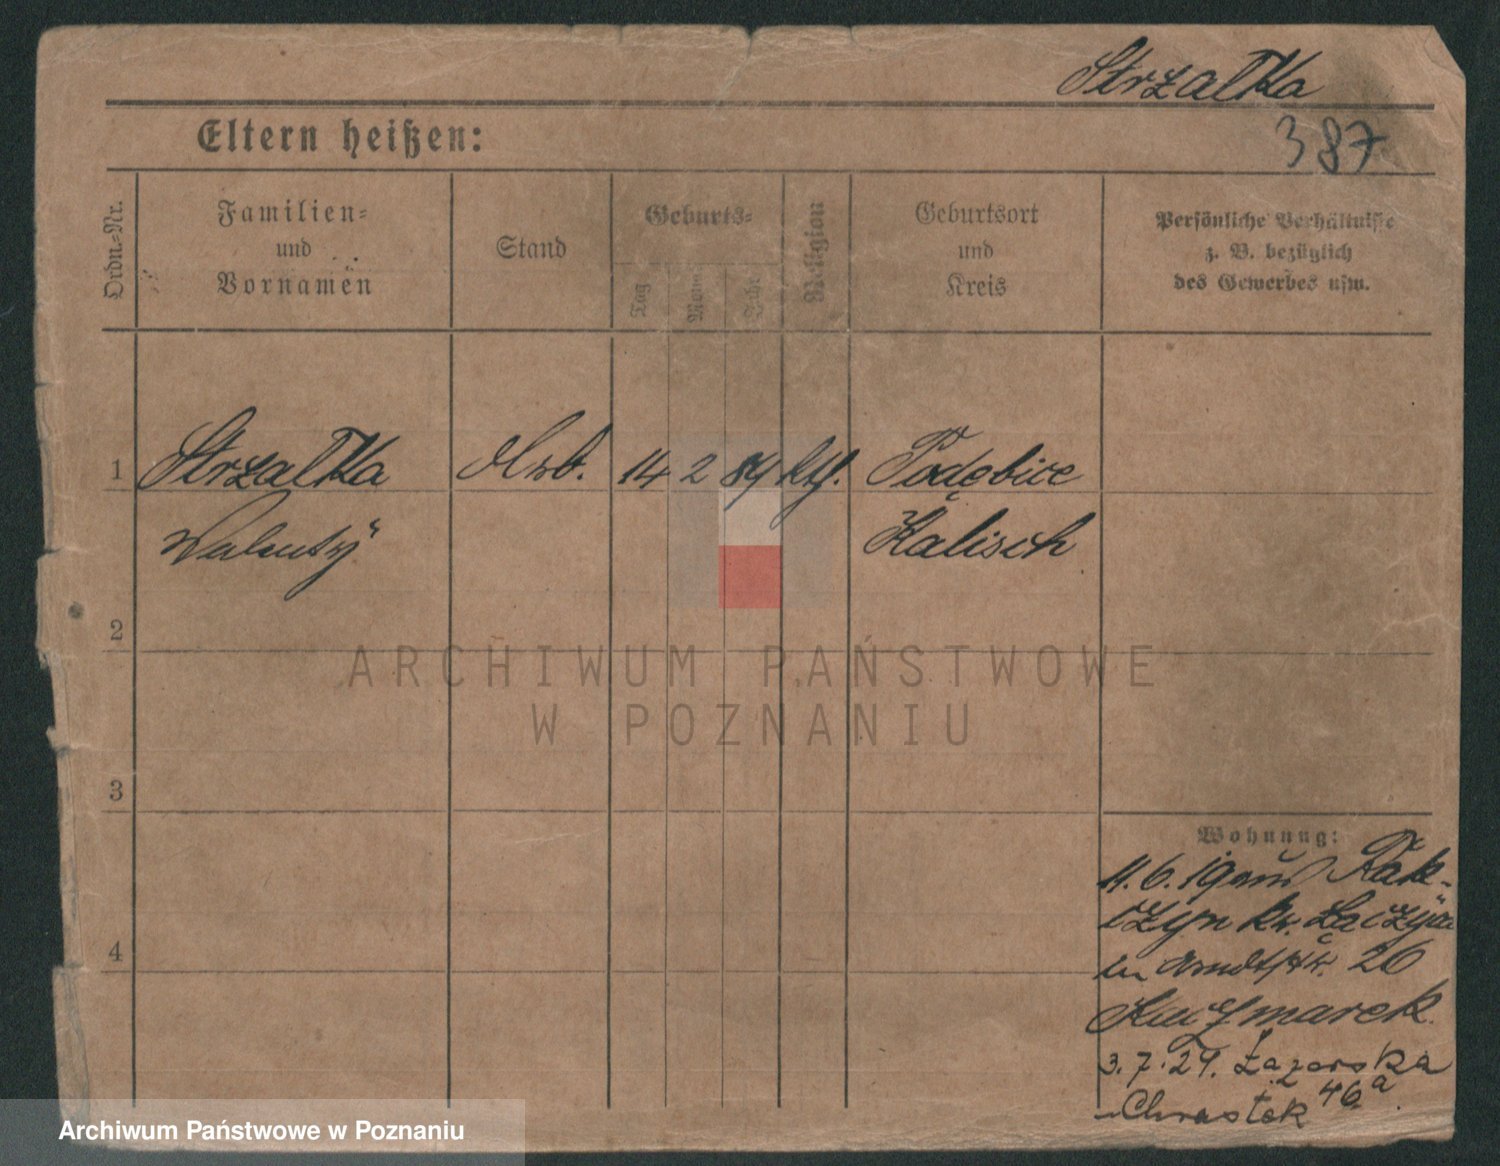 Strzalka
Eltern heißen:
387
Ordn.-Nr.
Familien-
und
Vornamen
Stand
Geburts-
Tag
Monat
Jahr
Religion
Geburtsort
und
Kreis
Persönliche Verhältnisse
z. B. bezüglich
des Gewerbes usw.
1 Strzalka Arb. 14 2 89 kth. Podębice
Walenty Kalisch
2
ARCHIWUM PAŃSTWOWE
W POZNANIU
3
Wohnung:
11.6.19 aus
kr.
4
26
Kaczmarek
3.7.29. Łazarska
Chrostek 46a.
Archiwum Państwowe w Poznaniu